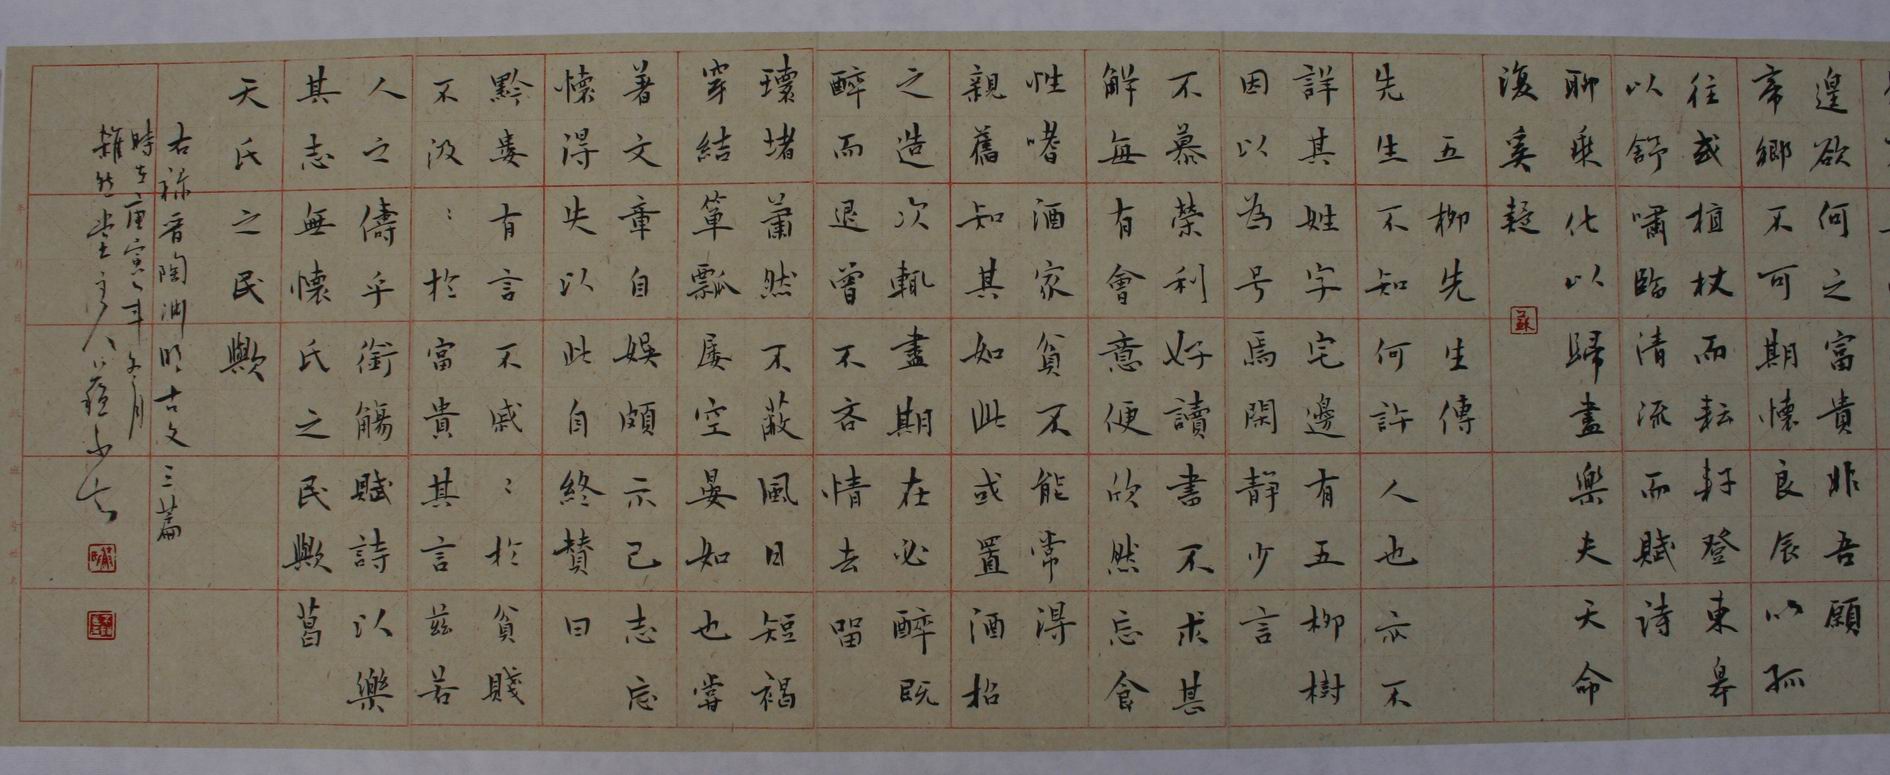 遑欲何之富貴非吾願
帝鄉不可期懷良辰以孤
往或植杖而耘耔登東皋
以舒嘯臨清流而賦詩
聊乘化以歸盡樂夫天命
復奚疑
蘇
五柳先生傳
先生不知何許人也亦不
詳其姓字宅邊有五柳樹
因以為号焉閑靜少言
不慕榮利好讀書不求甚
解每有會意便欣然忘食
性嗜酒家貧不能常得
親舊知其如此或置酒招
之造次輒盡期在必醉既
醉而退曾不吝情去留
環堵蕭然不蔽風日短褐
穿結簞瓢屢空晏如也嘗
著文章自娛頗示己志忘
懷得失以此自終贊曰
黔婁有言不戚〻於貧賤
不汲〻於富貴其言茲若
人之儔乎銜觴賦詩以樂
其志無懷氏之民歟葛
天氏之民歟
右錄晉陶淵明古文三篇
時在庚寅年冬月